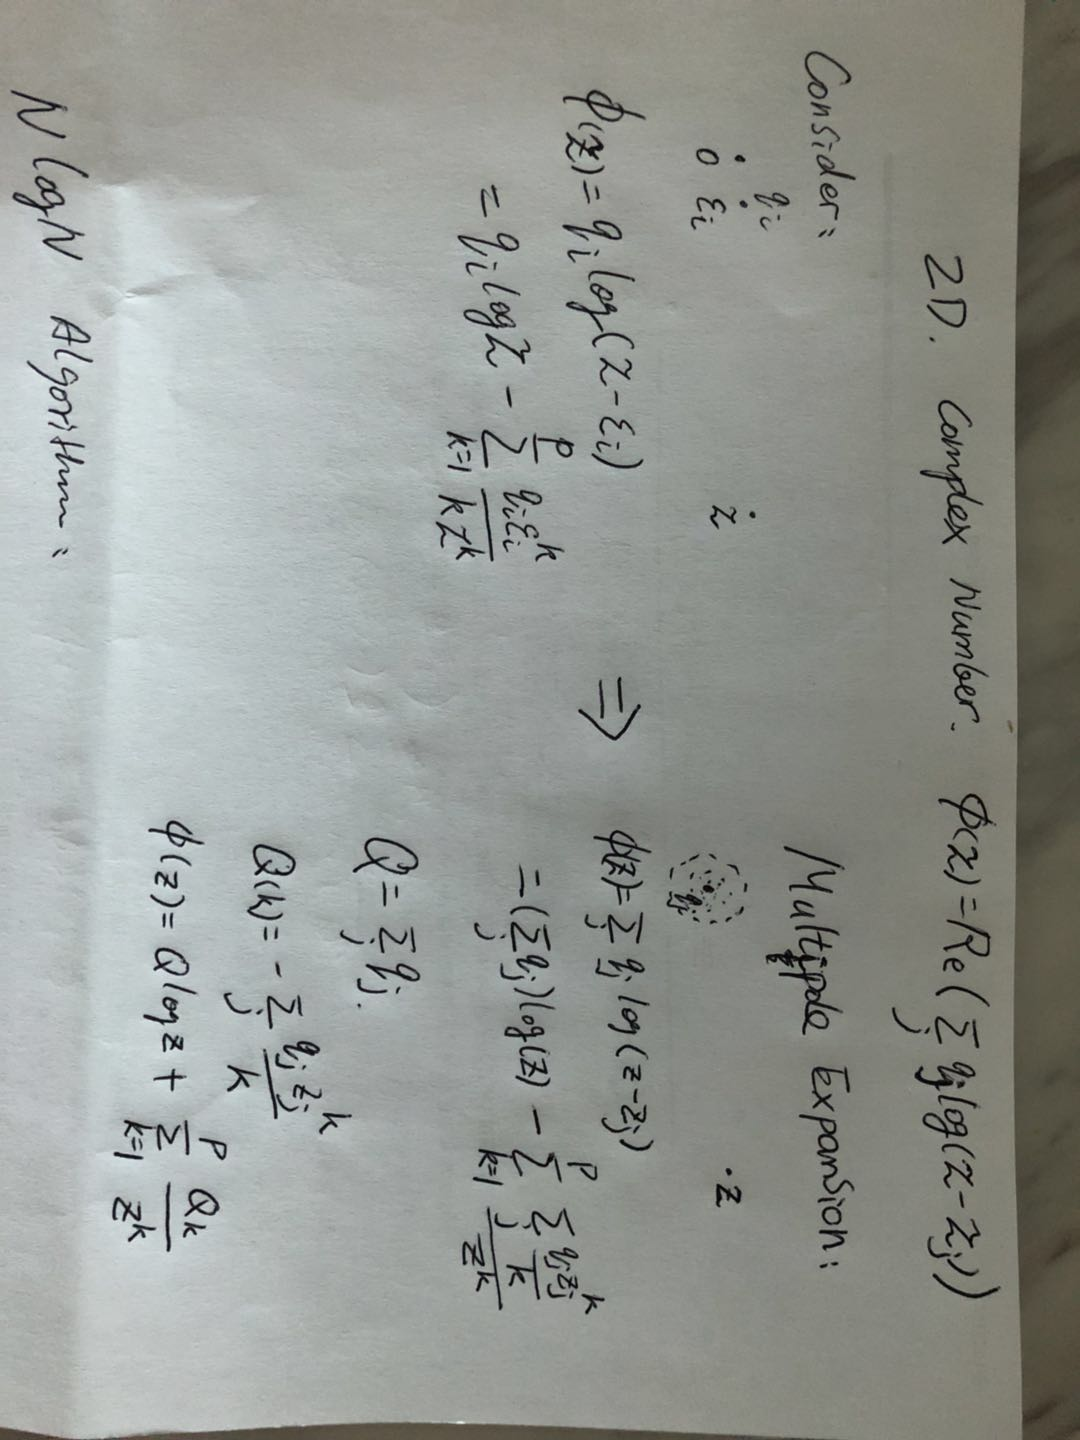 2D. Complex Number. φ(z)=Re(∑_j q_j log(z-z_j))
Consider:
q_i
0 ε_i z
φ(z)=q_i log(z-ε_i)
= q_i log z - ∑_{k=1}^{p} q_i ε_i^k / k z^k
⇒
Multipole Expansion:
q_j
z
φ(z)=∑_j q_j log(z-z_j)
=(∑_j q_j)log(z) - ∑_{k=1}^{p} ∑_j (q_j z_j^k / k) / z^k
Q=∑_j q_j.
Q(k)= -∑_j q_j z_j^k / k
φ(z)=Q log z + ∑_{k=1}^{p} Q_k / z^k
N log N Algorithm: